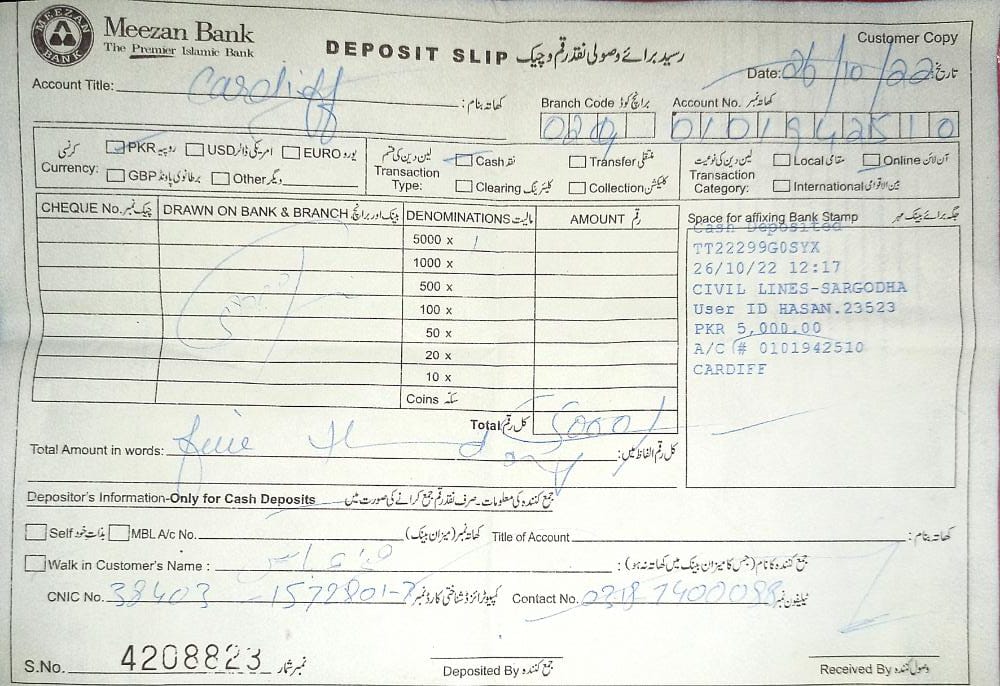 MEEZAN BANK
Meezan Bank
The Premier Islamic Bank
DEPOSIT SLIP رسید برائے وصولی نقد رقم و چیک
Customer Copy
Date: 26/10/22 تاریخ:
Account Title: Cardiff کھاتہ بنام:
Branch Code برانچ کوڈ Account No. کھاتہ نمبر
0101942510
Currency: کرنسی PKR روپیہ USD امریکی ڈالر EURO یورو
GBP برطانوی پاونڈ Other دیگر
Transaction Type: لین دین کی قسم Cash نقد Transfer منتقلی
Clearing کلیئرنگ Collection کلیکشن
Transaction Category: لین دین کی نوعیت Local مقامی Online آن لائن
International بین الاقوامی
CHEQUE No. چیک نمبر DRAWN ON BANK & BRANCH بینک اور برانچ DENOMINATIONS مالیت AMOUNT رقم
5000 x 1
1000 x
500 x
100 x
50 x
20 x
10 x
Coins سکہ
Total کل رقم 5000/
Space for affixing Bank Stamp جگہ برائے بینک مہر
Cash Deposited
TT22299G0SYX
26/10/22 12:17
CIVIL LINES-SARGODHA
User ID HASAN.23523
PKR 5,000.00
A/C # 0101942510
CARDIFF
Total Amount in words: کل رقم الفاظ میں:
Depositor's Information-Only for Cash Deposits جمع کنندہ کی معلومات۔ صرف نقد رقم جمع کرانے کی صورت میں
Self بذات خود MBL A/c No. کھاتہ نمبر (میزان بینک) Title of Account کھاتہ بنام:
Walk in Customer's Name : جمع کنندہ کا نام (جس کا میزان بینک میں کھاتہ نہ ہو) :
CNIC No. 38403-1572801-7 کمپیوٹرائزڈ شناختی کارڈ نمبر Contact No. ٹیلیفون نمبر
S.No. 4208823 نمبر شمار
Deposited By جمع کنندہ
Received By وصول کنندہ